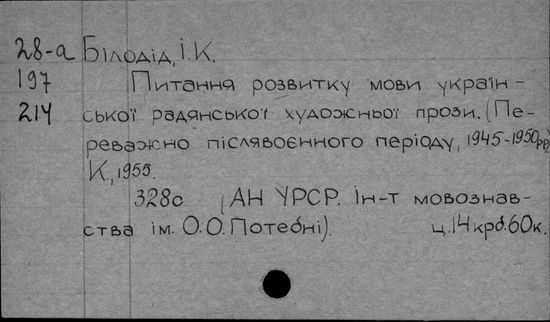 28-а Білодід, І.К.
197 Питання розвитку мови україн-
214 ської радянської художньої прози. (Пе-
реважно післявоєнного періоду, 1945-1950рр)
К., 1955.
328с (АН УРСР. Ін-т мовознав-
ства ім. О.О. Потебні). ц. 14 крб. 60к.